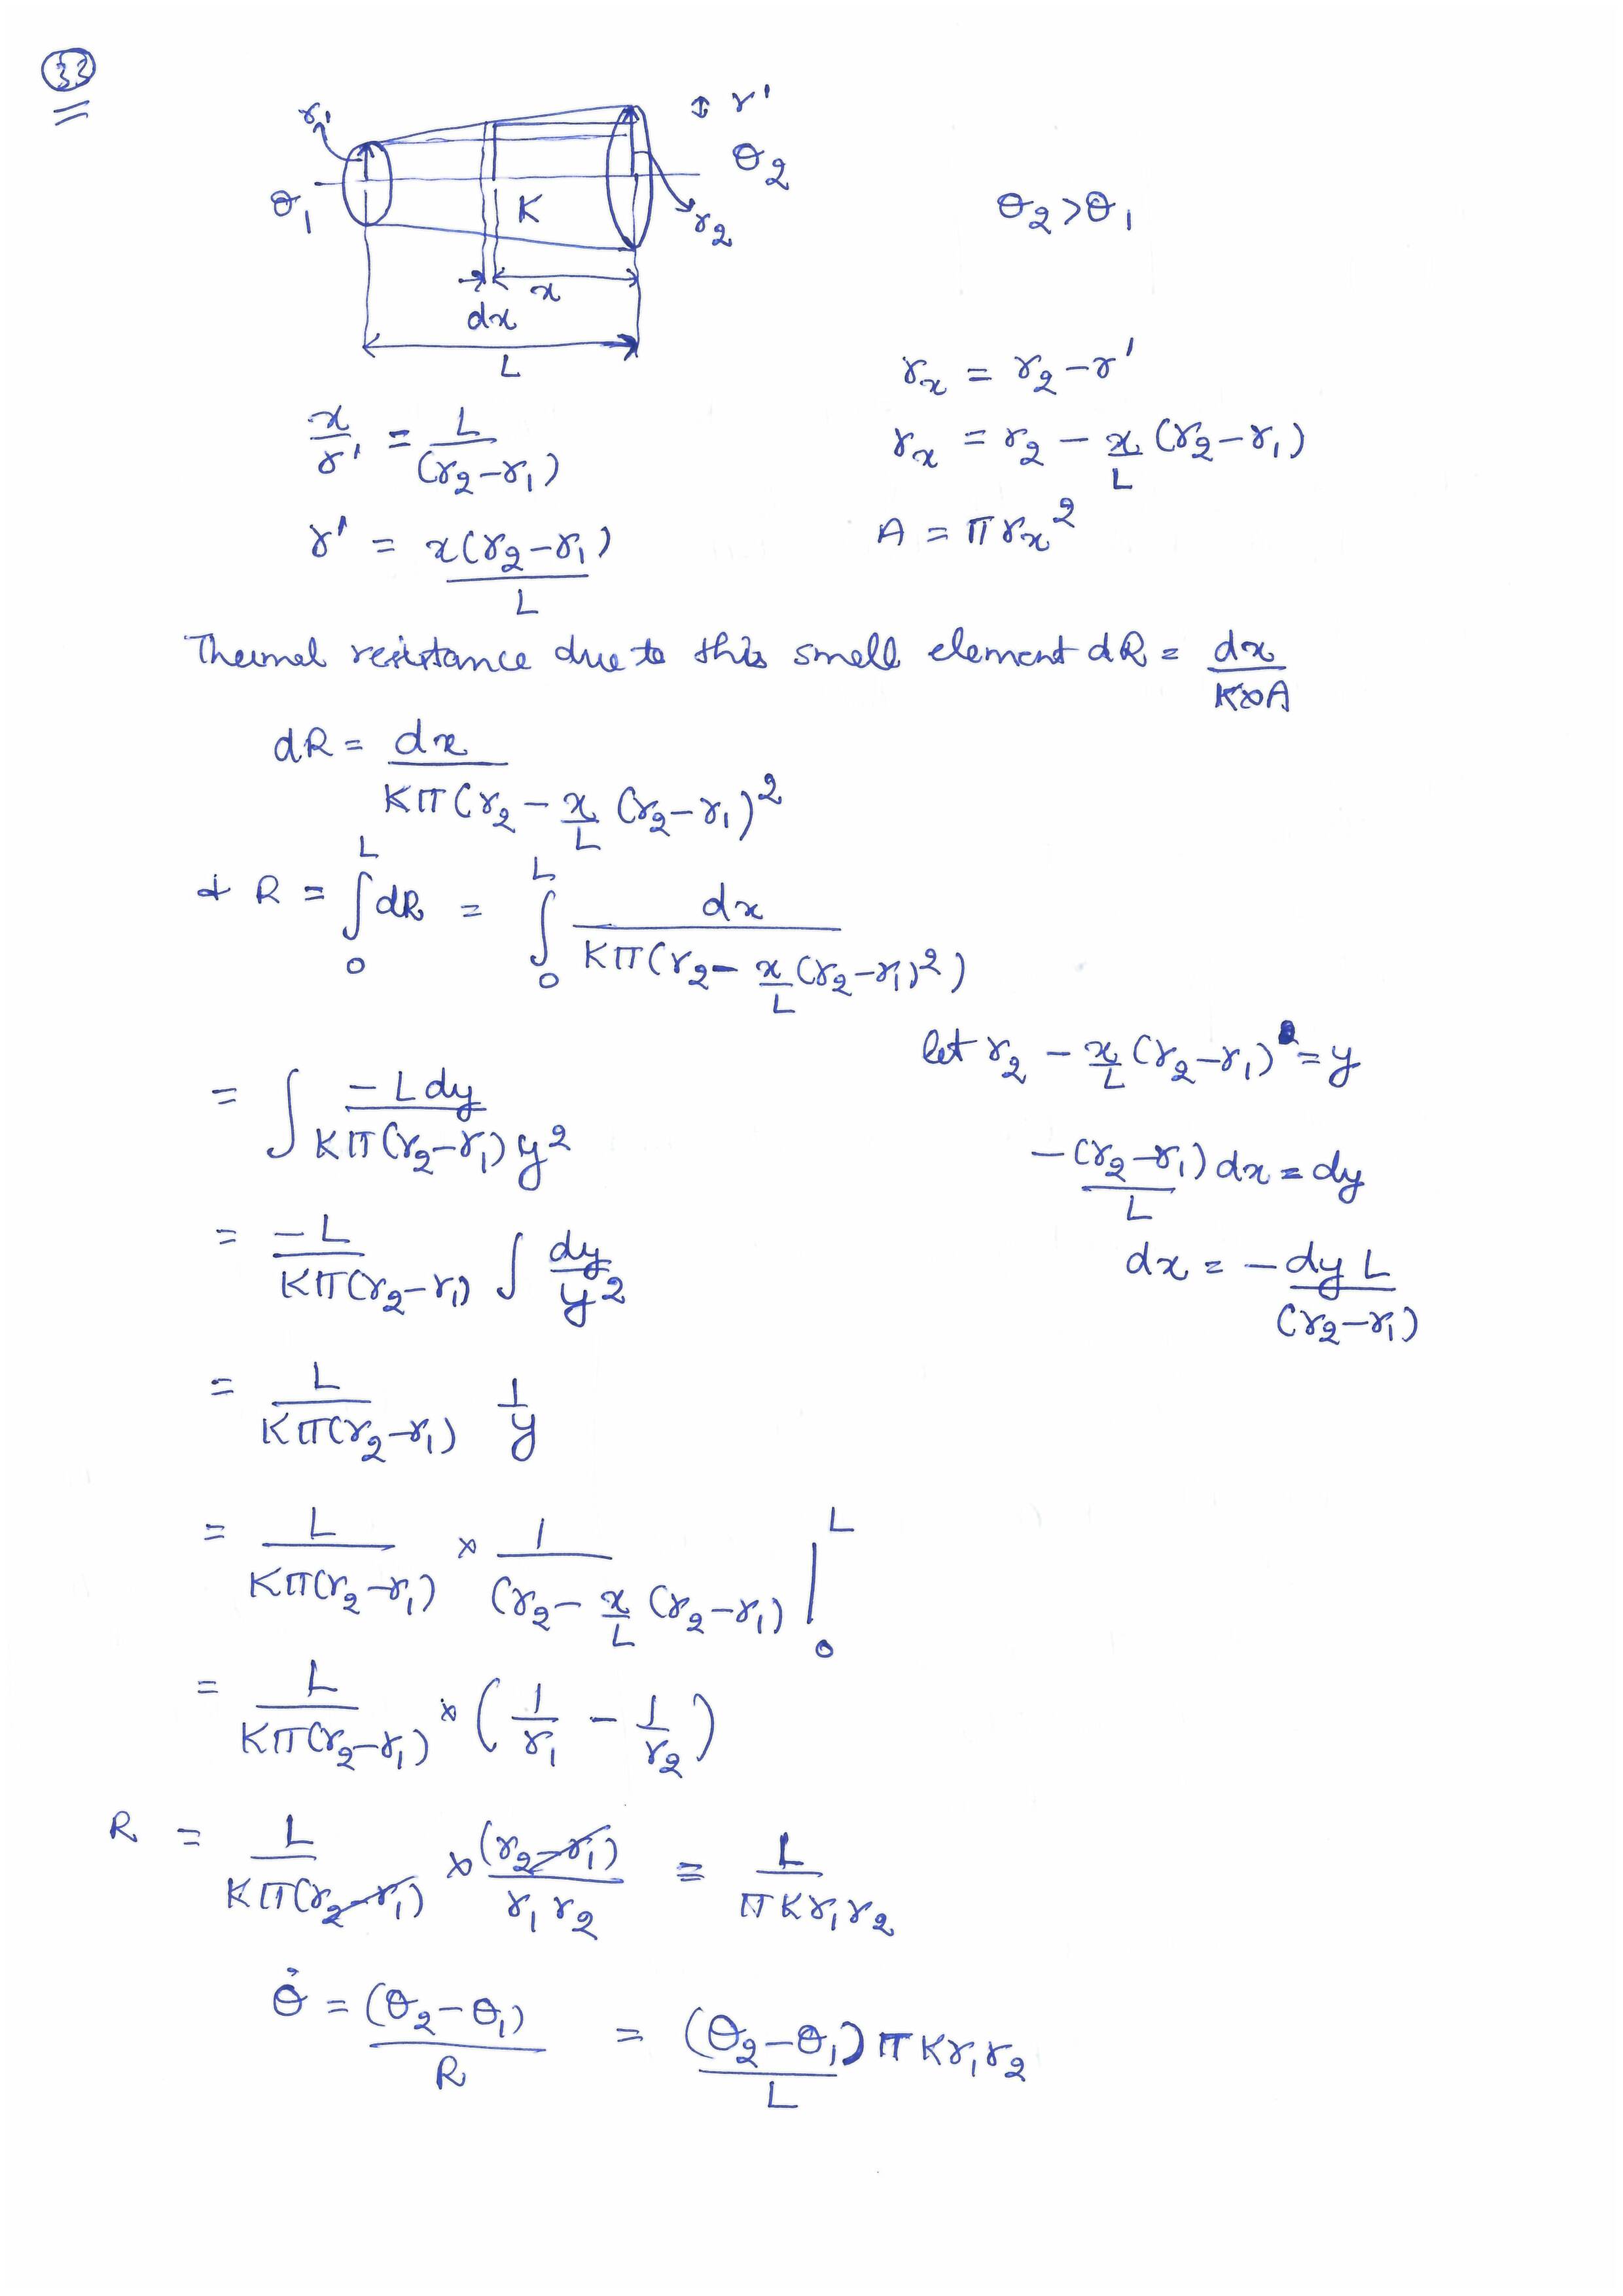 33
r₁ ↕ r'
θ₂
θ₁ K r₂ θ₂>θ₁
x
dx
L
x/r' = L/(r₂-r₁)
r' = x(r₂-r₁)/L
rₓ = r₂-r'
rₓ = r₂ - x/L (r₂-r₁)
A = πrₓ²
Thermal resistance due to this small element dR = dx/K×A
dR = dx/Kπ(r₂ - x/L (r₂-r₁)²
& R = ∫₀ᴸ dR = ∫₀ᴸ dx/Kπ(r₂ - x/L (r₂-r₁)²)
let r₂ - x/L (r₂-r₁) = y
= ∫ -L dy/Kπ(r₂-r₁) y²
-(r₂-r₁)/L dx = dy
= -L/Kπ(r₂-r₁) ∫ dy/y²
dx = - dy L/(r₂-r₁)
= L/Kπ(r₂-r₁) 1/y
= L/Kπ(r₂-r₁) × 1/(r₂ - x/L (r₂-r₁) |₀ᴸ
= L/Kπ(r₂-r₁) × (1/r₁ - 1/r₂)
R = L/Kπ(r₂-r₁) × (r₂-r₁)/r₁ r₂ = L/πKr₁r₂
θ̇ = (θ₂-θ₁)/R = (θ₂-θ₁)πKr₁r₂/L